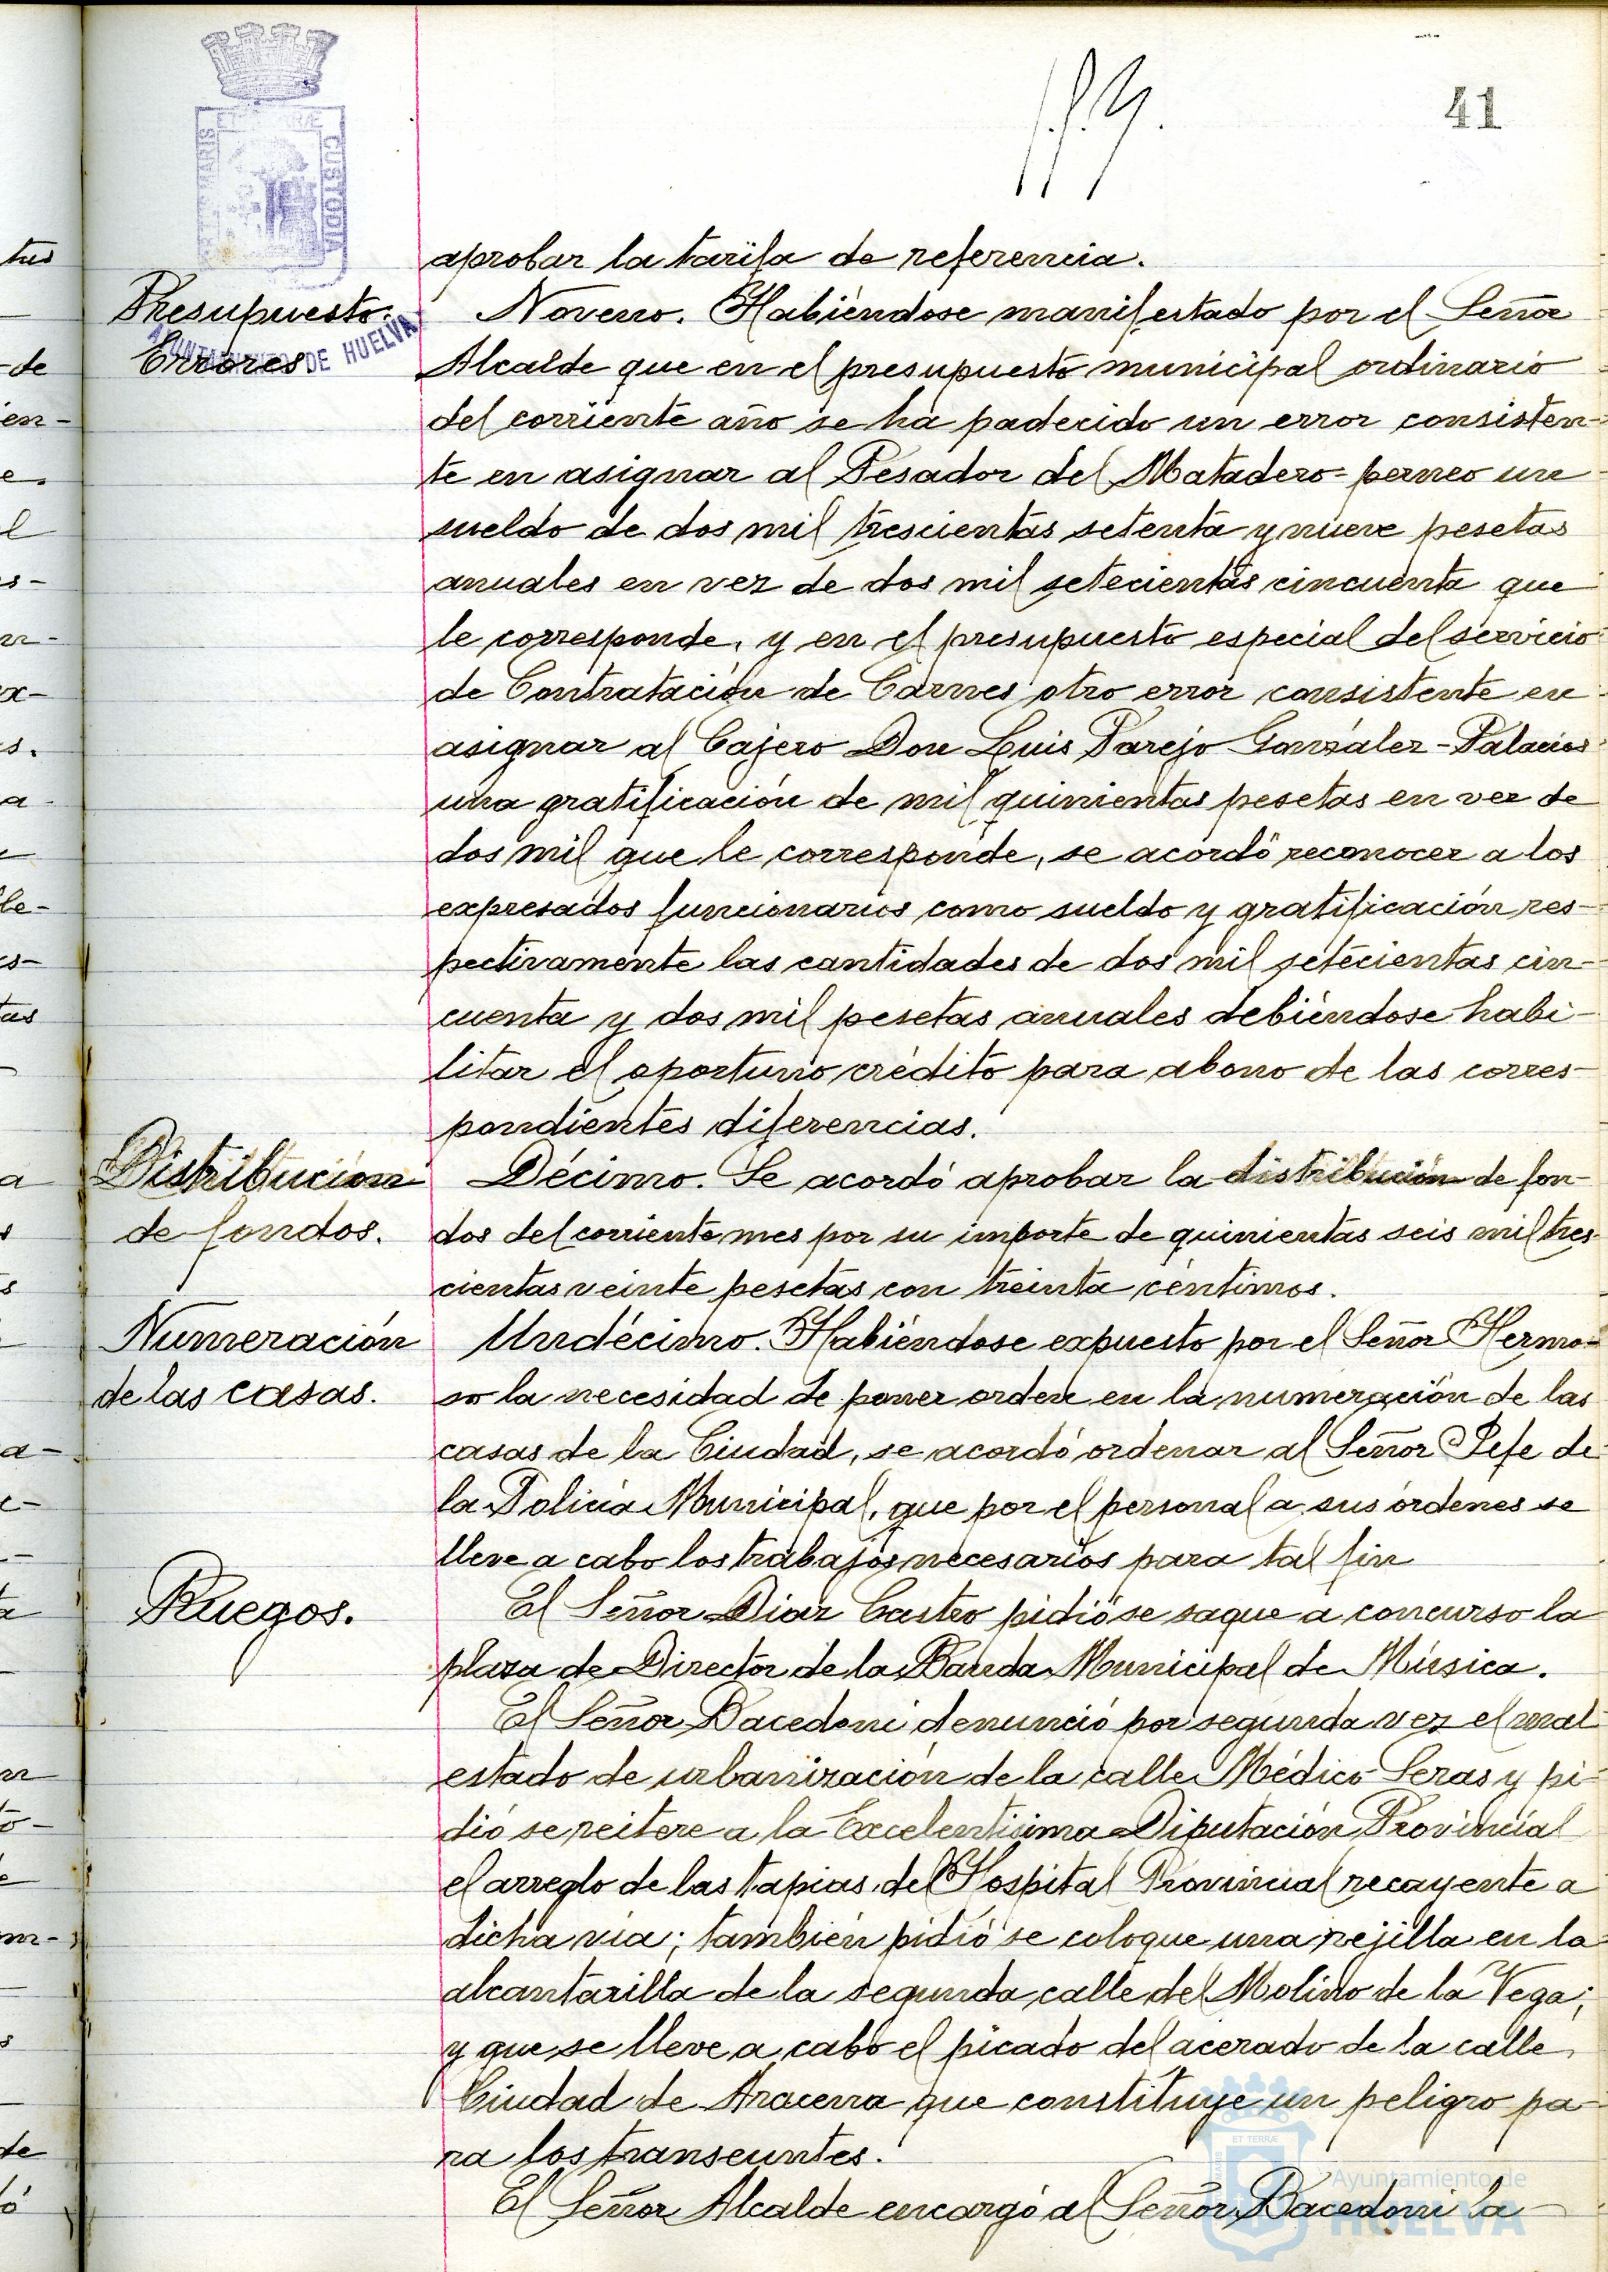 41
PORTUS MARIS ET TERRÆ CUSTODIA
AYUNTAMIENTO DE HUELVA
aprobar la tarifa de referencia.
Presupuesto.
Errores
Noveno. Habiéndose manifestado por el Señor
Alcalde que en el presupuesto municipal ordinario
del corriente año se ha padecido un error consisten-
te en asignar al Pesador del Matadero-perneo un
sueldo de dos mil trescientas setenta y nueve pesetas
anuales en vez de dos mil setecientas cincuenta que
le corresponde, y en el presupuesto especial del servicio
de Contratación de Carnes otro error consistente en
asignar al Cajero Don Luis Parejo González-Palacios
una gratificación de mil quinientas pesetas en vez de
dos mil que le corresponde, se acordó reconocer a los
expresados funcionarios como sueldo y gratificación res-
pectivamente las cantidades de dos mil setecientas cin-
cuenta y dos mil pesetas anuales debiéndose habi-
litar el oportuno crédito para abono de las corres-
pondientes diferencias.
Distribución
de fondos.
Décimo. Se acordó aprobar la distribución de fon-
dos del corriente mes por su importe de quinientas seis mil tres-
cientas veinte pesetas con treinta céntimos.
Numeración
de las casas.
Undécimo. Habiéndose expuesto por el Señor Hermo-
so la necesidad de poner orden en la numeración de las
casas de la Ciudad, se acordó ordenar al Señor Jefe de
la Policía Municipal, que por el personal a sus órdenes se
lleve a cabo los trabajos necesarios para tal fin
Ruegos.
El Señor Diaz Castro pidió se saque a concurso la
plaza de Director de la Banda Municipal de Música.
El Señor Bacedoni denunció por segunda vez el mal
estado de urbanización de la calle Médico Seras y pi-
dió se reitere a la Excelentisima Diputación Provincial
el arreglo de las tapias del Hospital Provincial recayente a
dicha via; también pidió se coloque una rejilla en la
alcantarilla de la segunda calle del Molino de la Vega;
y que se lleve a cabo el picado del acerado de la calle
Ciudad de Aracena que constituye un peligro pa-
ra los transeuntes.
El Señor Alcalde encargó al Señor Bacedoni la
Ayuntamiento de
HUELVA